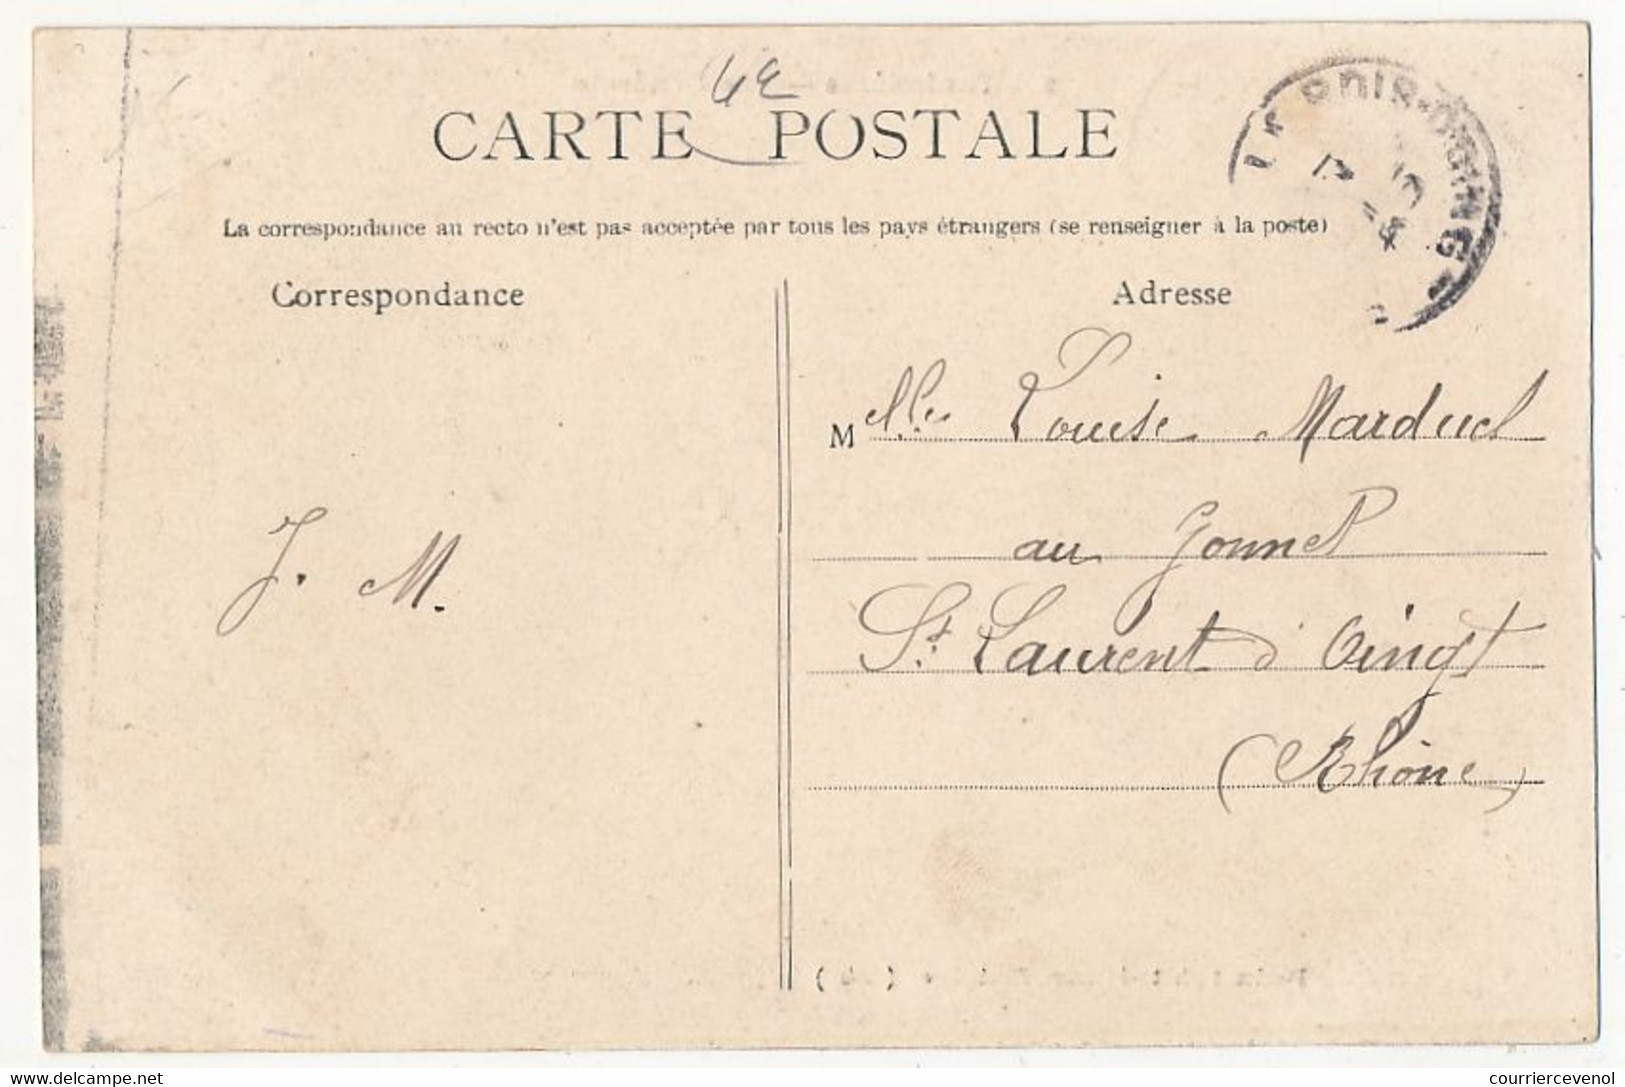 4E
CARTE POSTALE
La correspondance au recto n'est pas acceptée par tous les pays étrangers (se renseigner à la poste)
Correspondance
Adresse
Melle Louise Marduel
au Gonnet
St Laurent d'Oingt
(Rhône)
J. M.
delcampe.net
courriercevenol